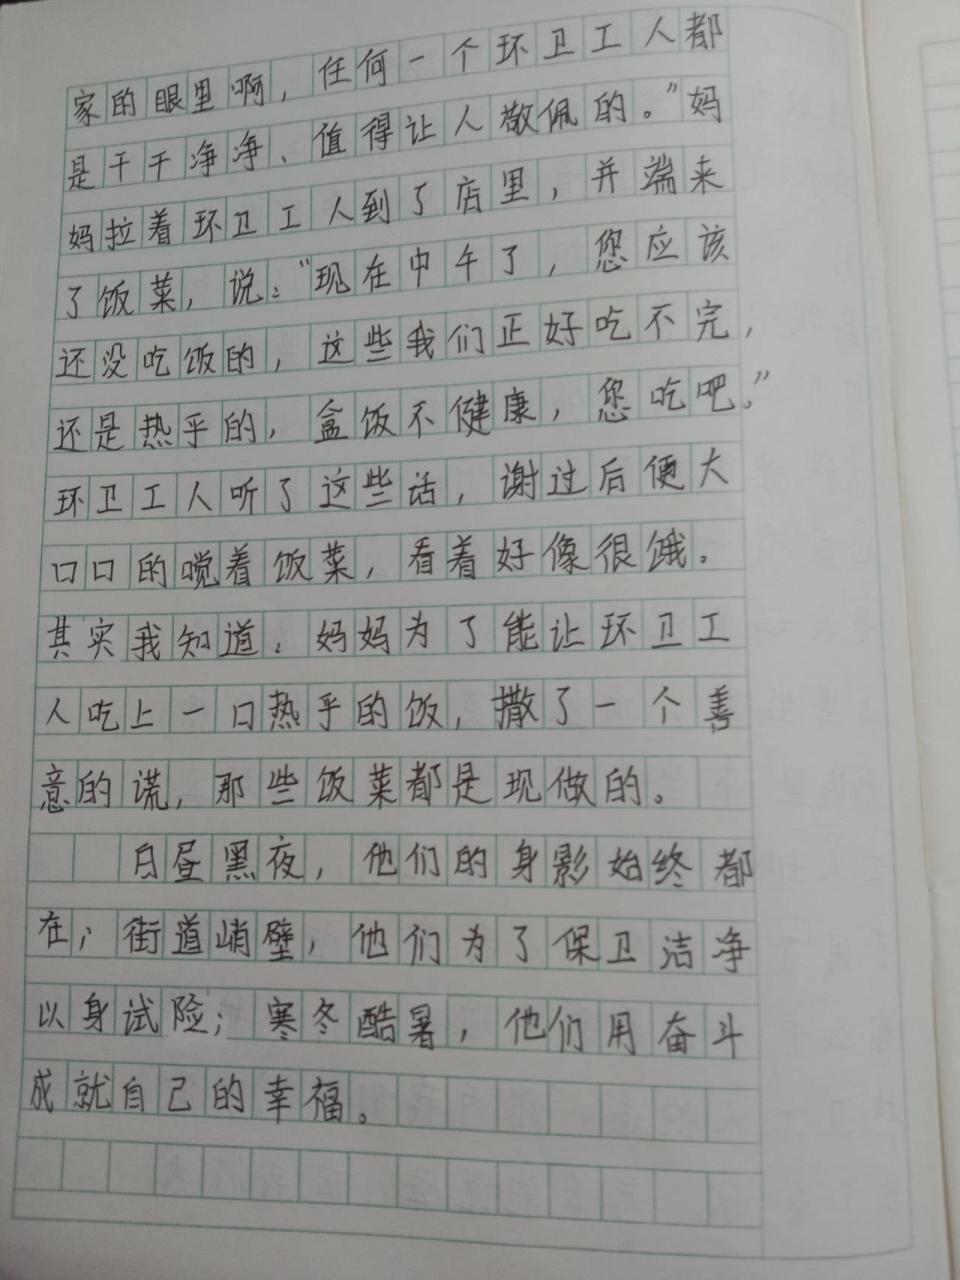 家的眼里啊，任何一个环卫工人都
是干干净净、值得让人敬佩的。”妈
妈拉着环卫工人到了店里，并端来
了饭菜，说：“现在中午了，您应该
还没吃饭的，这些我们正好吃不完，
还是热乎的，盒饭不健康，您吃吧。”
环卫工人听了这些话，谢过后便大
口口的嚼着饭菜，看着好像很饿。
其实我知道，妈妈为了能让环卫工
人吃上一口热乎的饭，撒了一个善
意的谎，那些饭菜都是现做的。
白昼黑夜，他们的身影始终都
在；街道峭壁，他们为了保卫洁净
以身试险；寒冬酷暑，他们用奋斗
成就自己的幸福。